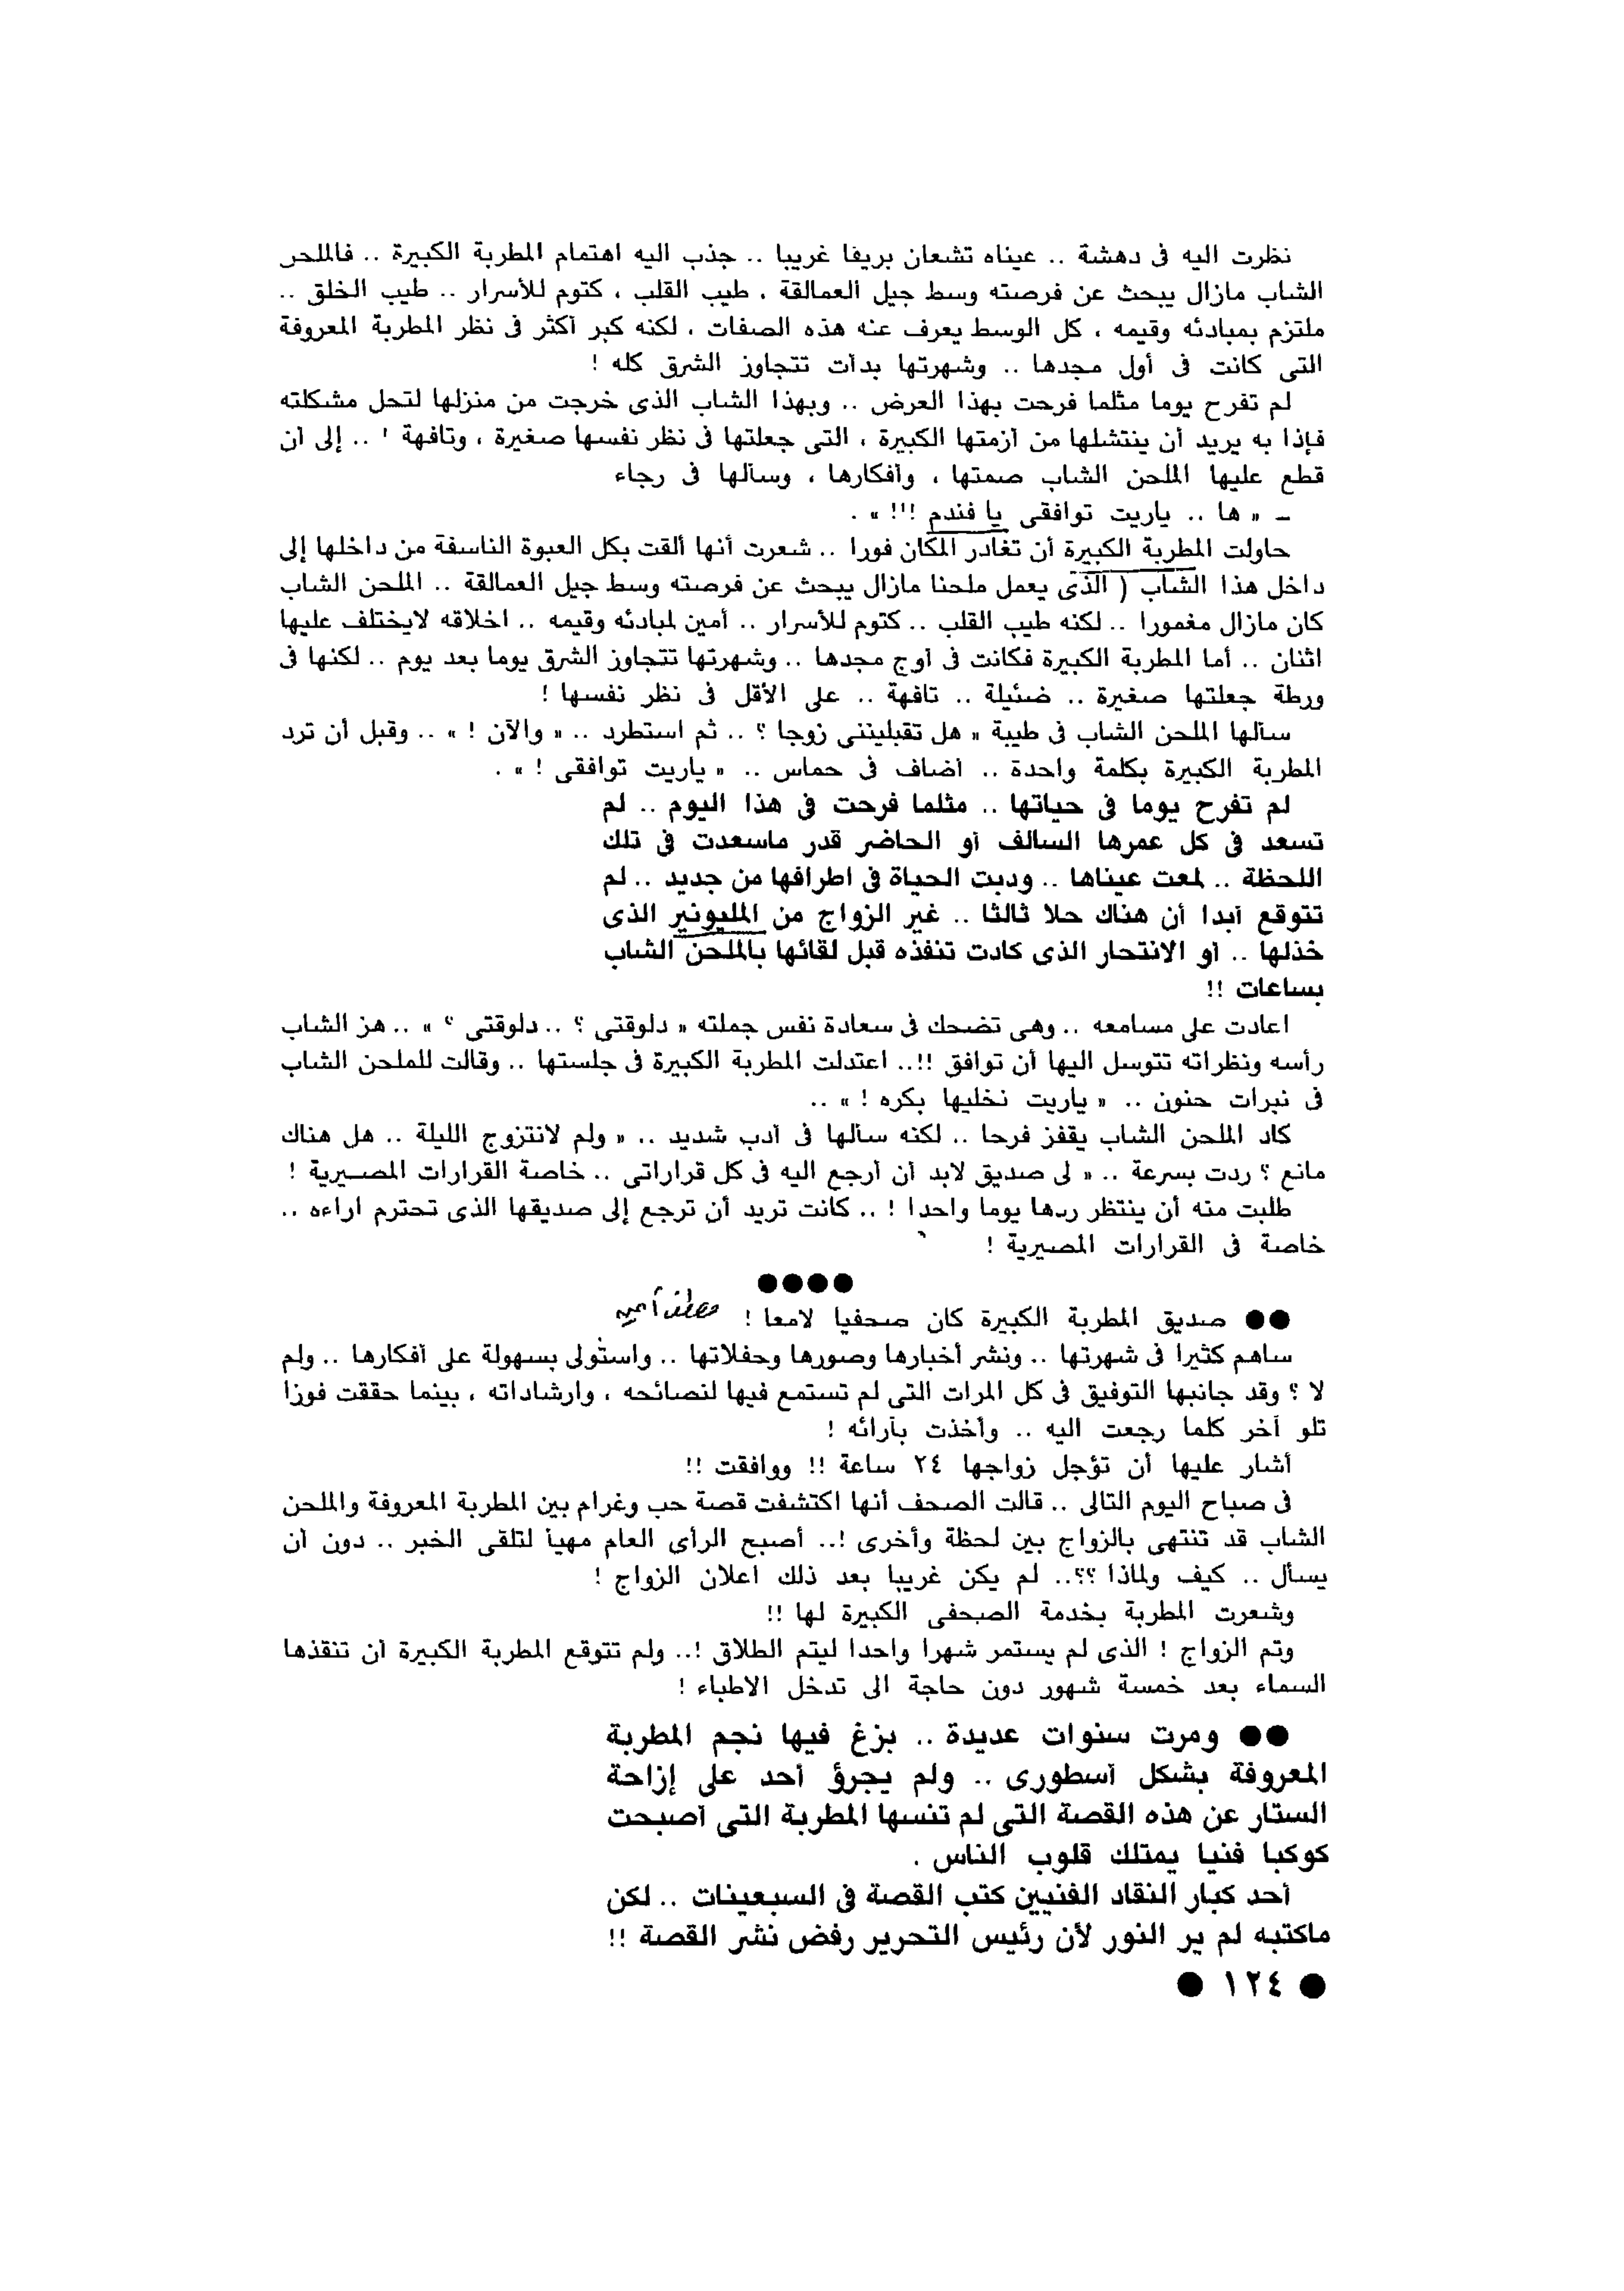 نظرت اليه فى دهشة .. عيناه تشعان بريقا غريبا .. جذب اليه اهتمام المطربة الكبيرة .. فالملحن
الشاب مازال يبحث عن فرصته وسط جيل العمالقة ، طيب القلب ، كتوم للأسرار .. طيب الخلق ..
ملتزم بمبادئه وقيمه ، كل الوسط يعرف عنه هذه الصفات ، لكنه كبر أكثر فى نظر المطربة المعروفة
التى كانت فى أول مجدها .. وشهرتها بدأت تتجاوز الشرق كله !
لم تفرح يوما مثلما فرحت بهذا العرض .. وبهذا الشاب الذى خرجت من منزلها لتحل مشكلته
فإذا به يريد أن ينتشلها من أزمتها الكبيرة ، التى جعلتها فى نظر نفسها صغيرة ، وتافهة ! .. إلى أن
قطع عليها الملحن الشاب صمتها ، وأفكارها ، وسألها فى رجاء
– « ها .. ياريت توافقى يا فندم !!! » .
حاولت المطربة الكبيرة أن تغادر المكان فورا .. شعرت أنها ألقت بكل العبوة الناسفة من داخلها إلى
داخل هذا الشاب ( الذى يعمل ملحنا مازال يبحث عن فرصته وسط جيل العمالقة .. الملحن الشاب
كان مازال مغمورا .. لكنه طيب القلب .. كتوم للأسرار .. أمين لمبادئه وقيمه .. اخلاقه لايختلف عليها
اثنان .. أما المطربة الكبيرة فكانت فى أوج مجدها .. وشهرتها تتجاوز الشرق يوما بعد يوم .. لكنها فى
ورطة جعلتها صغيرة .. ضئيلة .. تافهة .. على الأقل فى نظر نفسها !
سألها الملحن الشاب فى طيبة « هل تقبليننى زوجا ؟ .. ثم استطرد .. « والآن ! » .. وقبل أن ترد
المطربة الكبيرة بكلمة واحدة .. أضاف فى حماس .. « ياريت توافقى ! » .
لم تفرح يوما فى حياتها .. مثلما فرحت فى هذا اليوم .. لم
تسعد فى كل عمرها السالف أو الحاضر قدر ماسعدت فى تلك
اللحظة .. لمعت عيناها .. ودبت الحياة فى اطرافها من جديد .. لم
تتوقع أبدا أن هناك حلا ثالثا .. غير الزواج من المليونير الذى
خذلها .. أو الانتحار الذى كادت تنفذه قبل لقائها بالملحن الشاب
بساعات !!
اعادت على مسامعه .. وهى تضحك فى سعادة نفس جملته « دلوقتى ؟ .. دلوقتى ؟ » .. هز الشاب
رأسه ونظراته تتوسل اليها أن توافق !!.. اعتدلت المطربة الكبيرة فى جلستها .. وقالت للملحن الشاب
فى نبرات حنون .. « ياريت نخليها بكره ! » ..
كاد الملحن الشاب يقفز فرحا .. لكنه سألها فى أدب شديد .. « ولم لانتزوج الليلة .. هل هناك
مانع ؟ ردت بسرعة .. « لى صديق لابد أن أرجع اليه فى كل قراراتى .. خاصة القرارات المصيرية !
طلبت منه أن ينتظر ردها يوما واحدا ! .. كانت تريد أن ترجع إلى صديقها الذى تحترم اراءه ..
خاصة فى القرارات المصيرية !
●●●●
●● صديق المطربة الكبيرة كان صحفيا لامعا ! مصطفى أمين
ساهم كثيرا فى شهرتها .. ونشر أخبارها وصورها وحفلاتها .. واستولى بسهولة على أفكارها .. ولم
لا ؟ وقد جانبها التوفيق فى كل المرات التى لم تستمع فيها لنصائحه ، وارشاداته ، بينما حققت فوزا
تلو آخر كلما رجعت اليه .. وأخذت بآرائه !
أشار عليها أن تؤجل زواجها ٢٤ ساعة !! ووافقت !!
فى صباح اليوم التالى .. قالت الصحف أنها اكتشفت قصة حب وغرام بين المطربة المعروفة والملحن
الشاب قد تنتهى بالزواج بين لحظة وأخرى !.. أصبح الرأى العام مهيأ لتلقى الخبر .. دون أن
يسأل .. كيف ولماذا ؟؟.. لم يكن غريبا بعد ذلك اعلان الزواج !
وشعرت المطربة بخدمة الصحفى الكبيرة لها !!
وتم الزواج ! الذى لم يستمر شهرا واحدا ليتم الطلاق !.. ولم تتوقع المطربة الكبيرة أن تنقذها
السماء بعد خمسة شهور دون حاجة الى تدخل الاطباء !
●● ومرت سنوات عديدة .. بزغ فيها نجم المطربة
المعروفة بشكل أسطورى .. ولم يجرؤ أحد على إزاحة
الستار عن هذه القصة التى لم تنسها المطربة التى أصبحت
كوكبا فنيا يمتلك قلوب الناس .
أحد كبار النقاد الفنيين كتب القصة فى السبعينات .. لكن
ماكتبه لم ير النور لأن رئيس التحرير رفض نشر القصة !!
● ١٢٤ ●